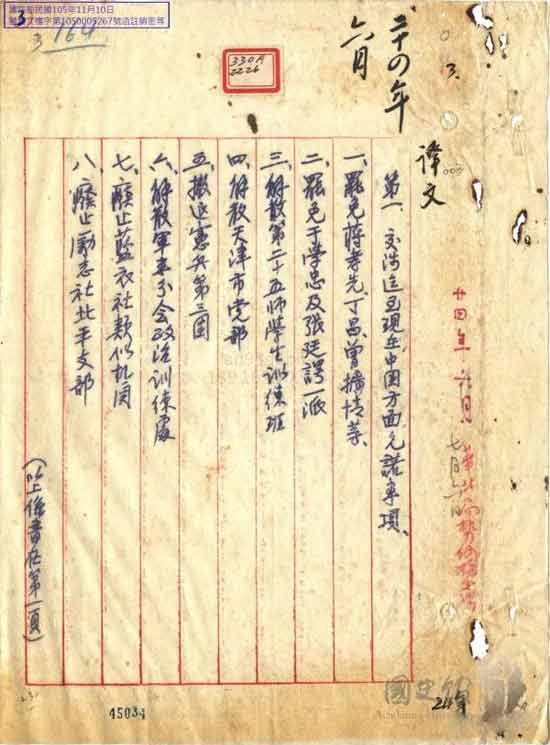 國史館民國105年11月10日
第1050005267號函註銷密等
3
3 164
330A
2226
二十四年
六月
譯文
廿四年六月
第一、交涉迄至現在中国方面允諾事項、
一、罷免蔣孝先、丁昌、曾擴情等、
二、罷免于學忠及張廷諤一派
三、解散第二十五師學生訓練班
四、解散天津市党部
五、撤退憲兵第三團
六、解散軍委分会政治訓練處
七、廢止藍衣社類似机関
八、廢止勵志社北平支部
(以上係書在第一頁)
45034
國史館